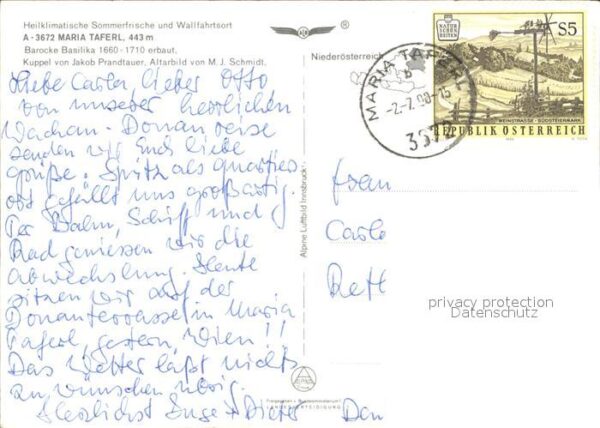 Heilklimatische Sommerfrische und Wallfahrtsort
A - 3672 MARIA TAFERL, 443 m
Barocke Basilika 1660 - 1710 erbaut,
Kuppel von Jakob Prandtauer, Altarbild von M. J. Schmidt.
Niederösterreich
Liebe Carla, lieber Otto
von unserer herrlichen
Wachau-Donaureise
senden wir Euch liebe
Grüße. Spitz als Quartiers
ort gefällt uns großartig.
Per Bahn, Schiff und
Rad geniessen wir die
Abwechslung. Heute
sitzen wir auf der
Donauterrasse in Maria
Taferl, gestern, Wien!!
Das Wetter läßt nichts
zu wünschen übrig.
Herzlichst Inge + Dieter
Alpine Luftbild Innsbruck
Freigegeben v. Bundesministerium f.
LANDESVERTEIDIGUNG
MARIA TAFERL
3672
NATUR
SCHÖN
HEITEN
S5
WEINSTRASSE - SÜDSTEIERMARK
REPUBLIK ÖSTERREICH
Frau
Carla
Rett
privacy protection
Datenschutz